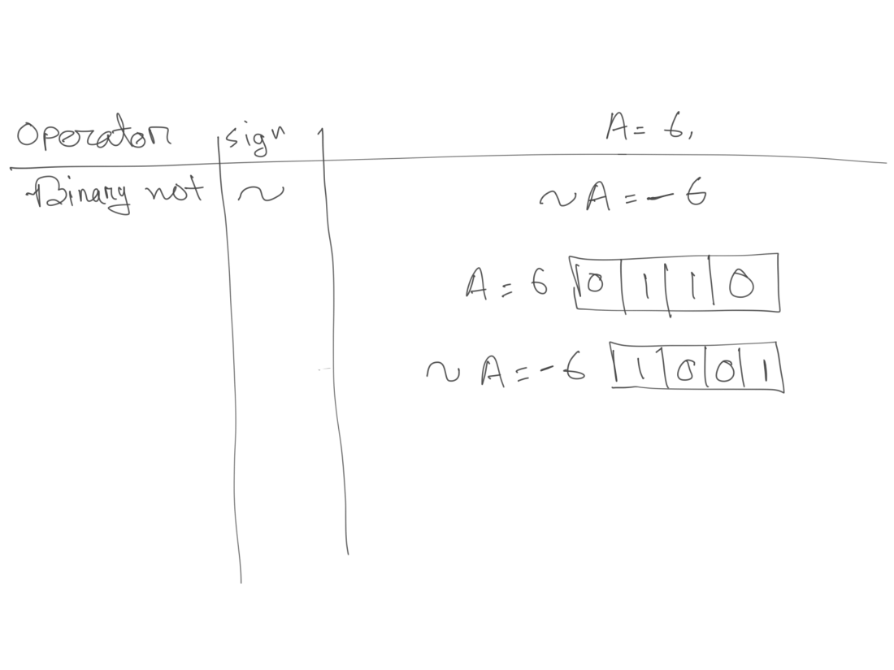 Operator sign A = 6,
Binary not ~ ~ A = - 6
A = 6 0 1 1 0
~ A = - 6 1 0 0 1